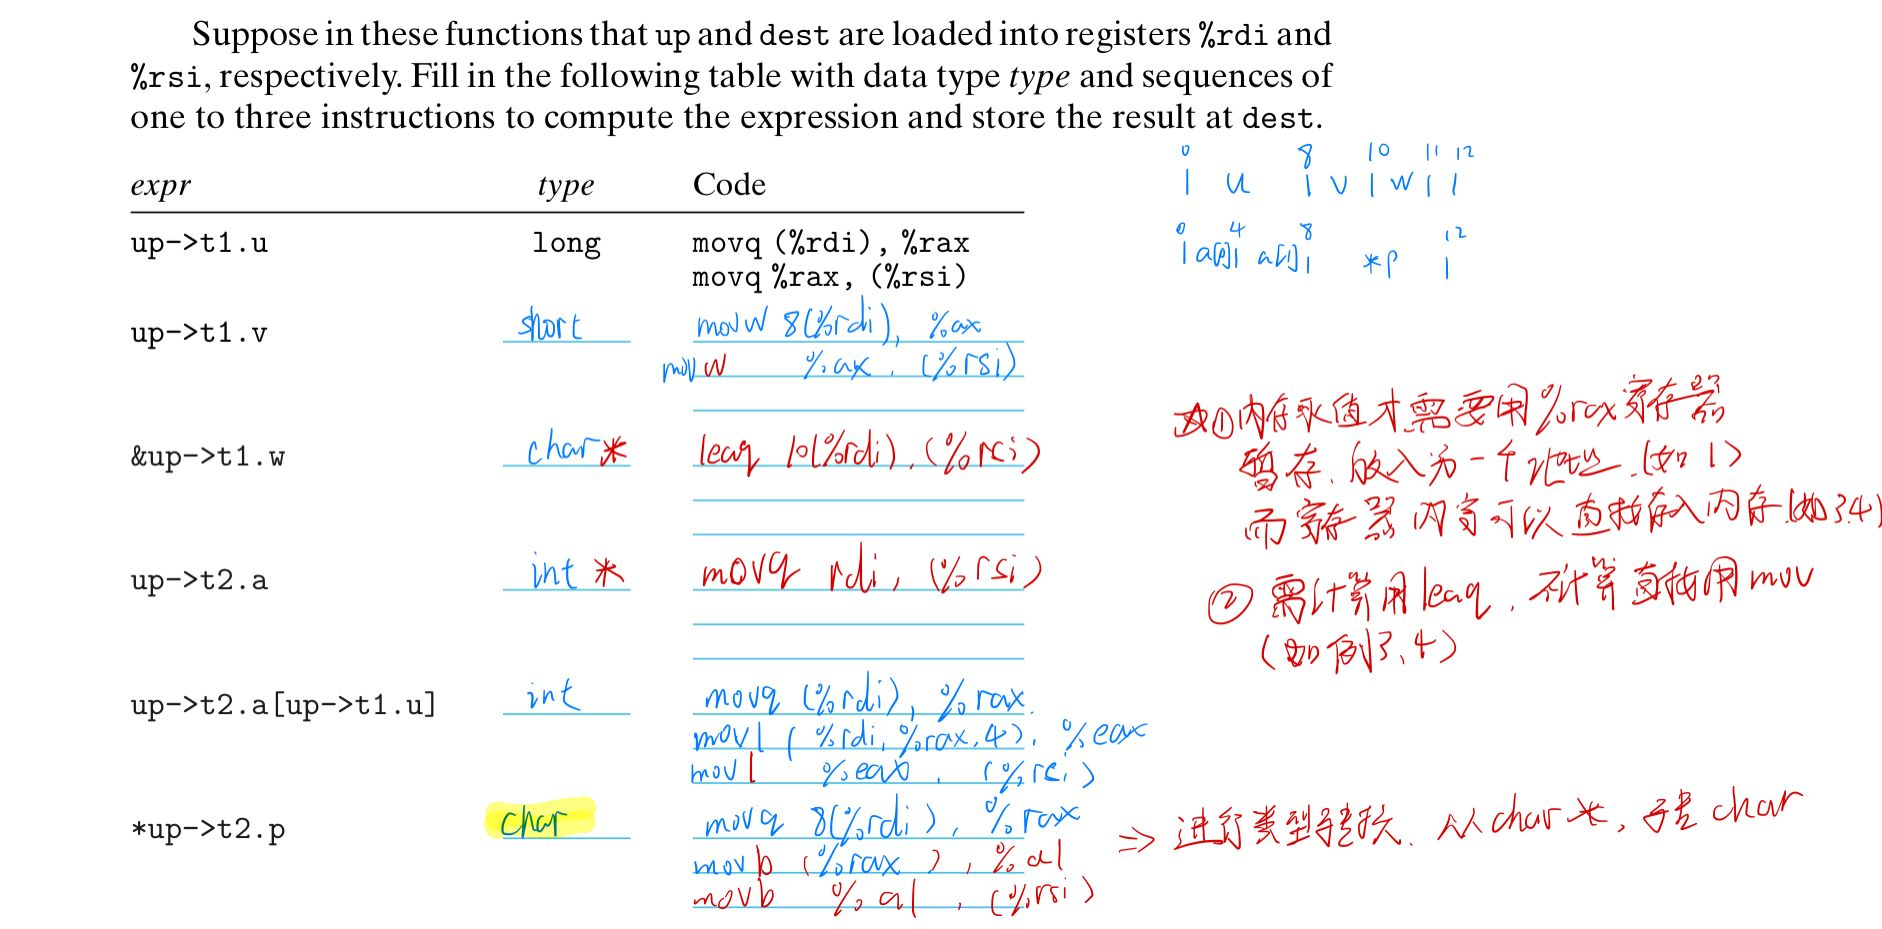 Suppose in these functions that up and dest are loaded into registers %rdi and
%rsi, respectively. Fill in the following table with data type type and sequences of
one to three instructions to compute the expression and store the result at dest.
0 8 10 11 12
| u | v | w | |
0 4 8 12
| a[0] | a[1] | *p |
expr type Code
up->t1.u long movq (%rdi), %rax
movq %rax, (%rsi)
up->t1.v short movw 8(%rdi), %ax
movw %ax, (%rsi)
&up->t1.w char* leaq 10(%rdi), (%rsi)
up->t2.a int* movq rdi, (%rsi)
up->t2.a[up->t1.u] int movq (%rdi), %rax.
movl (%rdi,%rax,4), %eax
movl %eax, (%rsi)
*up->t2.p char movq 8(%rdi), %rax
movb (%rax), %al
movb %al, (%rsi)
①内存取值才需要用%rax寄存器
暂存,放入另一个地址.(如1)
而寄存器内容可以直接存入内存(如3.4)
② 需计算用leaq,不计算直接用mov
(如例3、4)
⇒ 进行类型转换.从char*,于是char